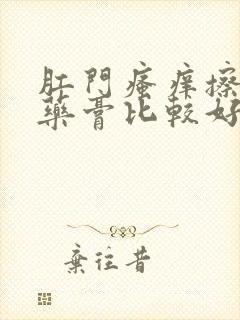 肛門瘙痒擦
藥膏比較好
棄往昔